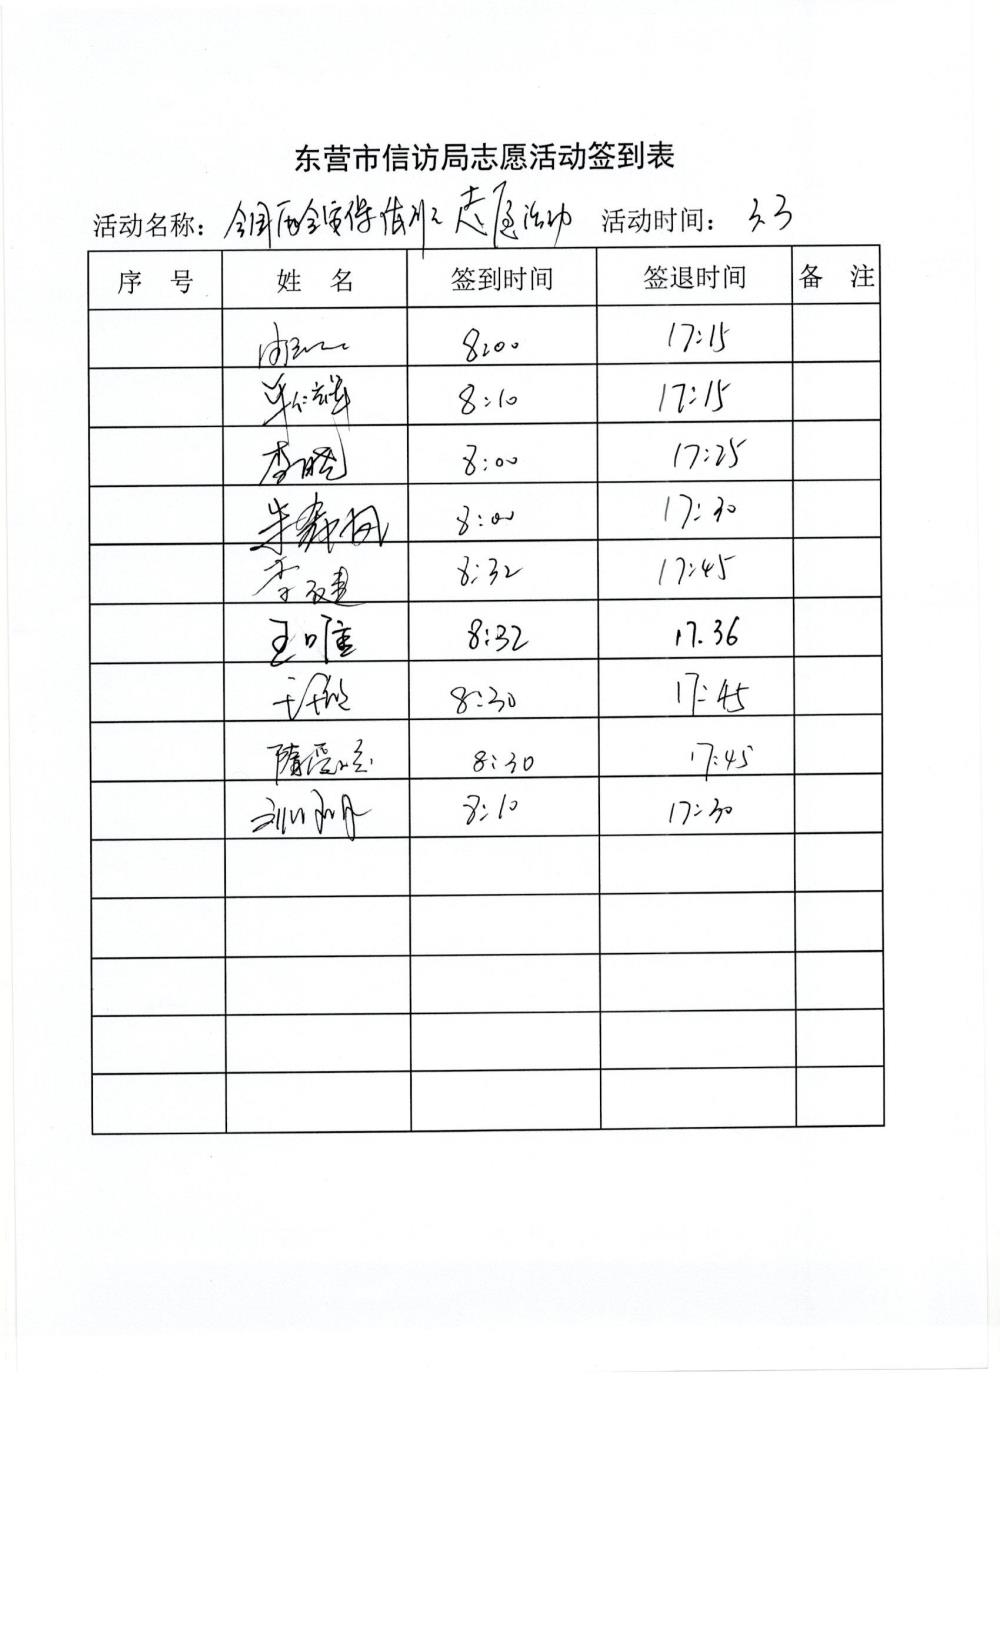 东营市信访局志愿活动签到表
活动名称： 全国两会安保 志愿活动 活动时间： 3.3
序 号 姓 名 签到时间 签退时间 备 注
8:00 17:15
8:10 17:15
李晓 8:00 17:25
朱 8:00 17:30
李 8:32 17:45
王唯 8:32 17.36
8:30 17:45
隋 8:30 17:45
刘 8:10 17:30